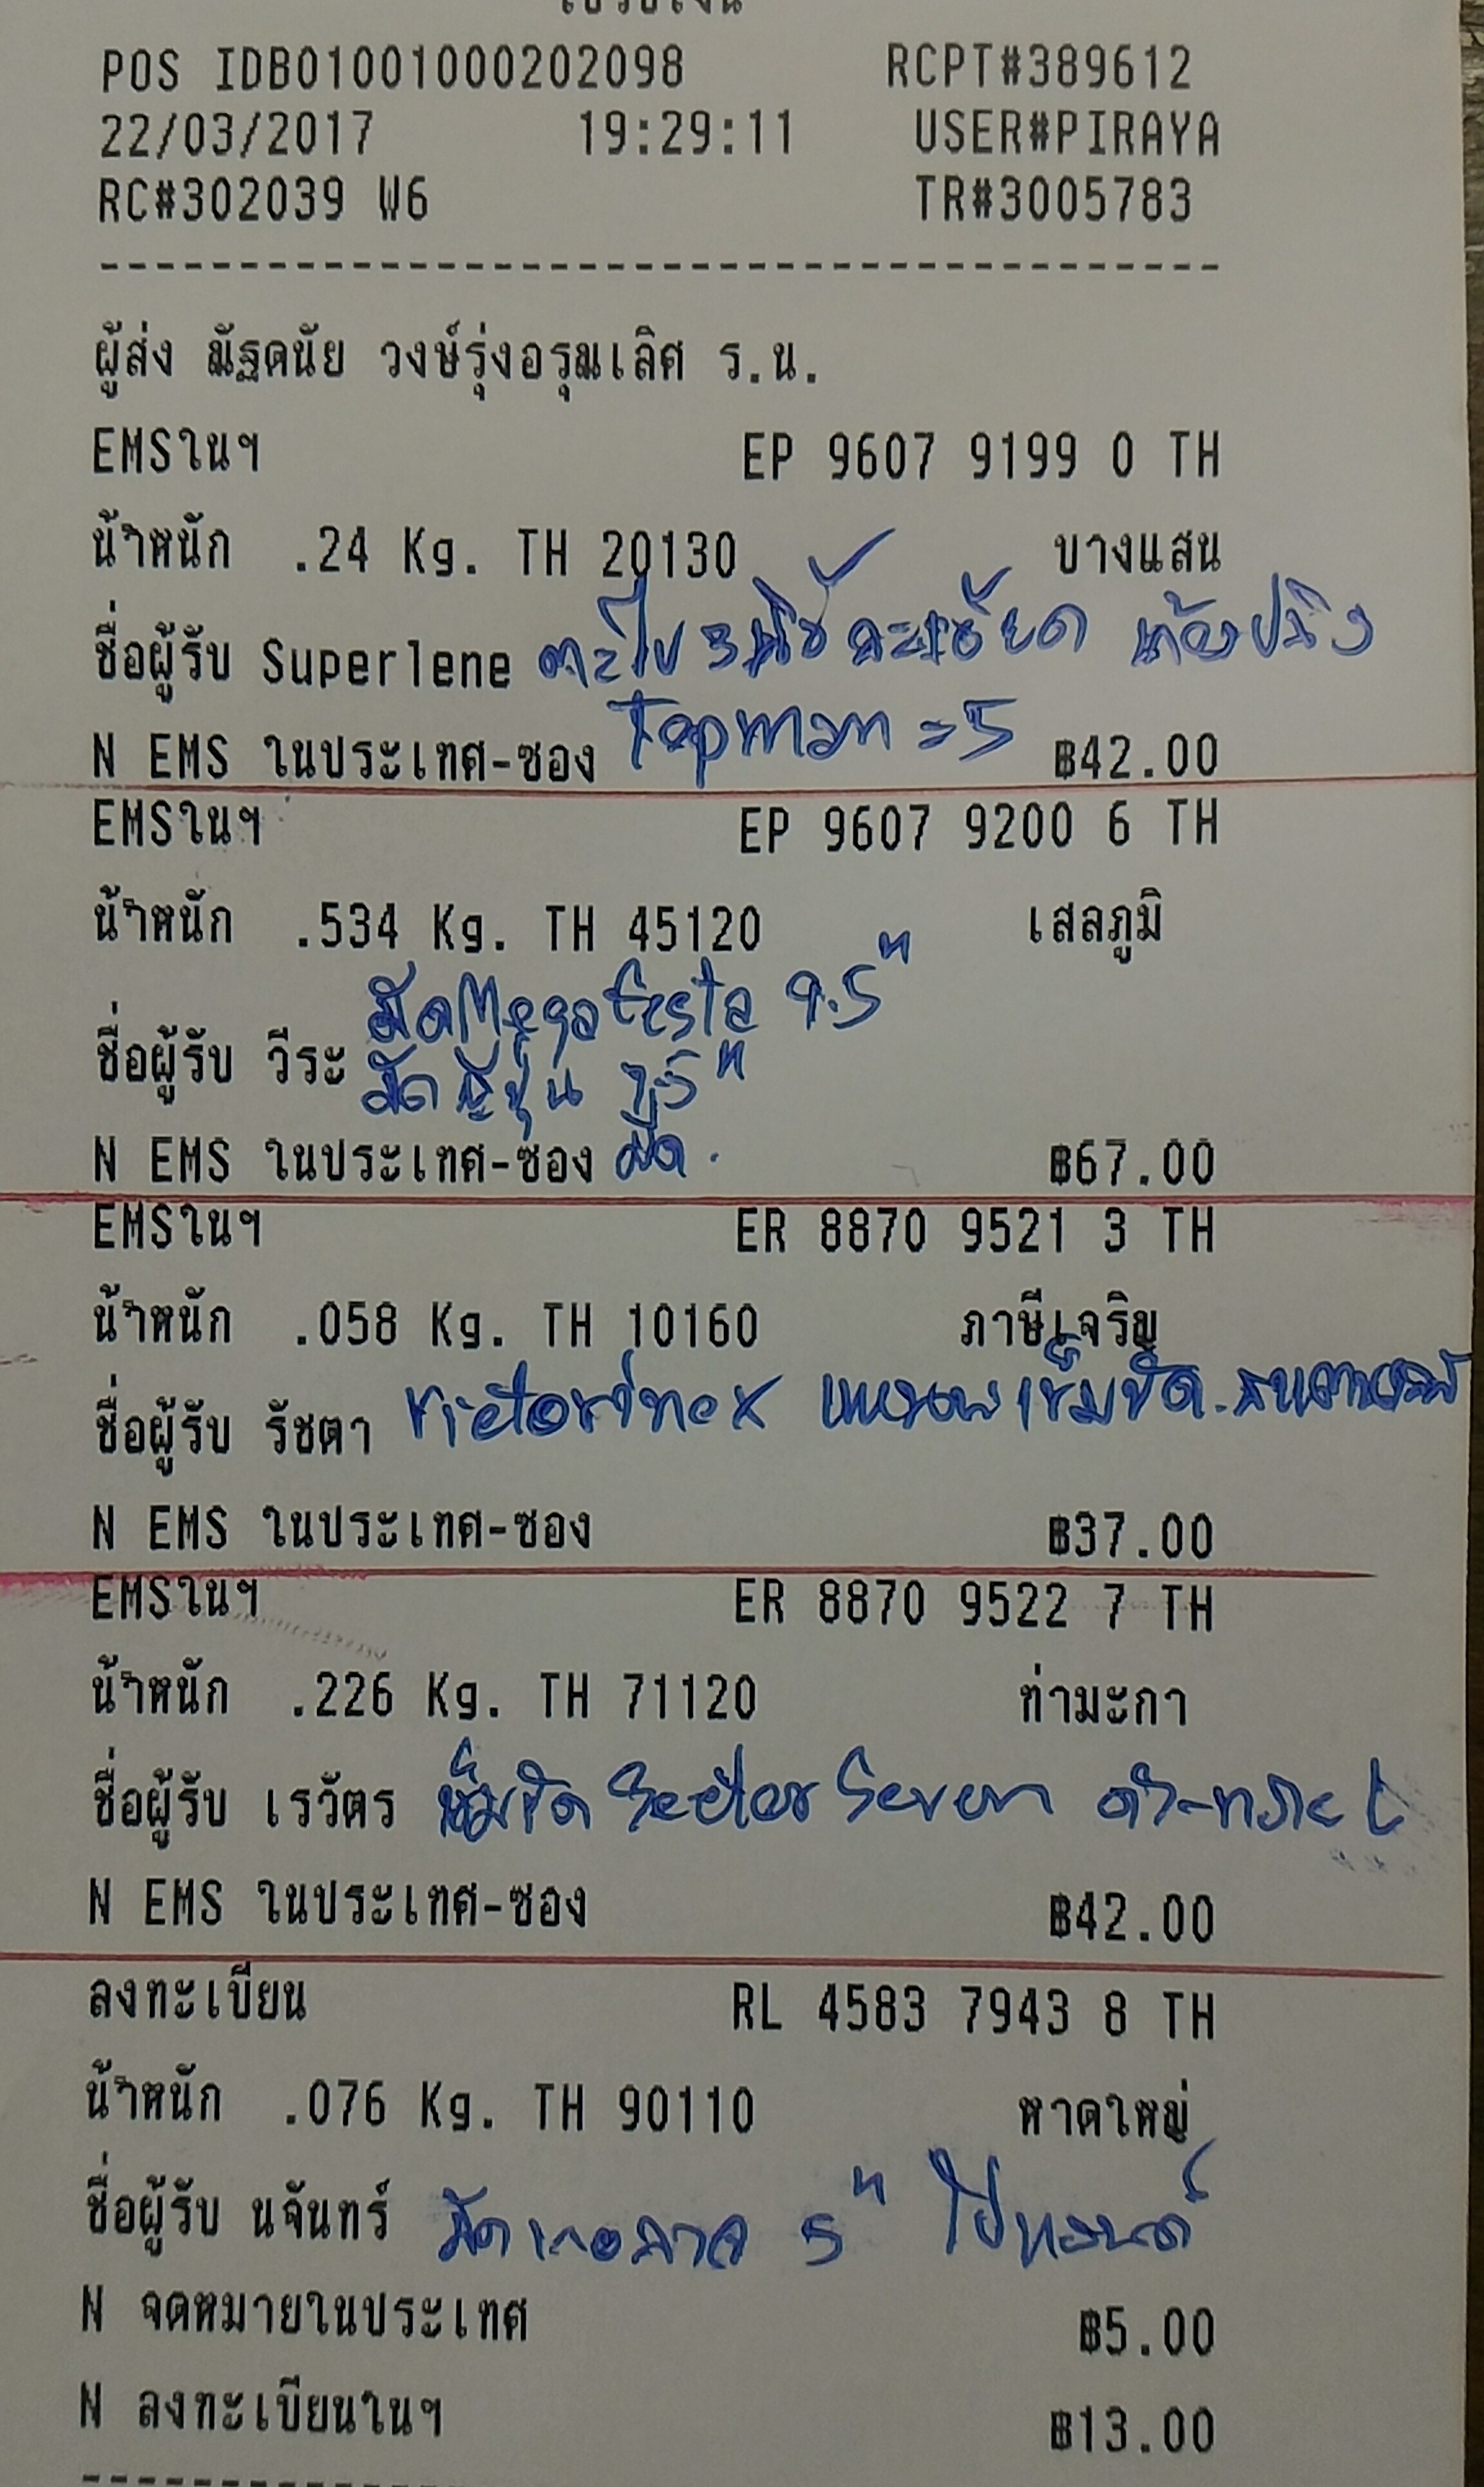 POS IDB01001000202098 RCPT#389612
22/03/2017 19:29:11 USER#PIRAYA
RC#302039 W6 TR#3005783
ผู้ส่ง ณัฐดนัย วงษ์รุ่งอรุณเลิศ ร.น.
EMSในฯ EP 9607 9199 0 TH
น้ำหนัก .24 Kg. TH 20130 บางแสน
ชื่อผู้รับ Superlene ตะไบ 3 นิ้ว ละเอียด
Topman = 5
N EMS ในประเทศ-ซอง ฿42.00
EMSในฯ EP 9607 9200 6 TH
น้ำหนัก .534 Kg. TH 45120 เสลภูมิ
มีด Mega 9.5"
ชื่อผู้รับ วีระ มีด ญี่ปุ่น 7.5"
N EMS ในประเทศ-ซอง มีด. ฿67.00
EMSในฯ ER 8870 9521 3 TH
น้ำหนัก .058 Kg. TH 10160 ภาษีเจริญ
ชื่อผู้รับ รัชตา Victorinox แหนบ เข็มขัด.
N EMS ในประเทศ-ซอง ฿37.00
EMSในฯ ER 8870 9522 7 TH
น้ำหนัก .226 Kg. TH 71120 ท่ามะกา
ชื่อผู้รับ เรวัตร เข็มขัด Sector Seven
N EMS ในประเทศ-ซอง ฿42.00
ลงทะเบียน RL 4583 7943 8 TH
น้ำหนัก .076 Kg. TH 90110 หาดใหญ่
ชื่อผู้รับ นจันทร์ มีด 5"
N จดหมายในประเทศ ฿5.00
N ลงทะเบียนในฯ ฿13.00